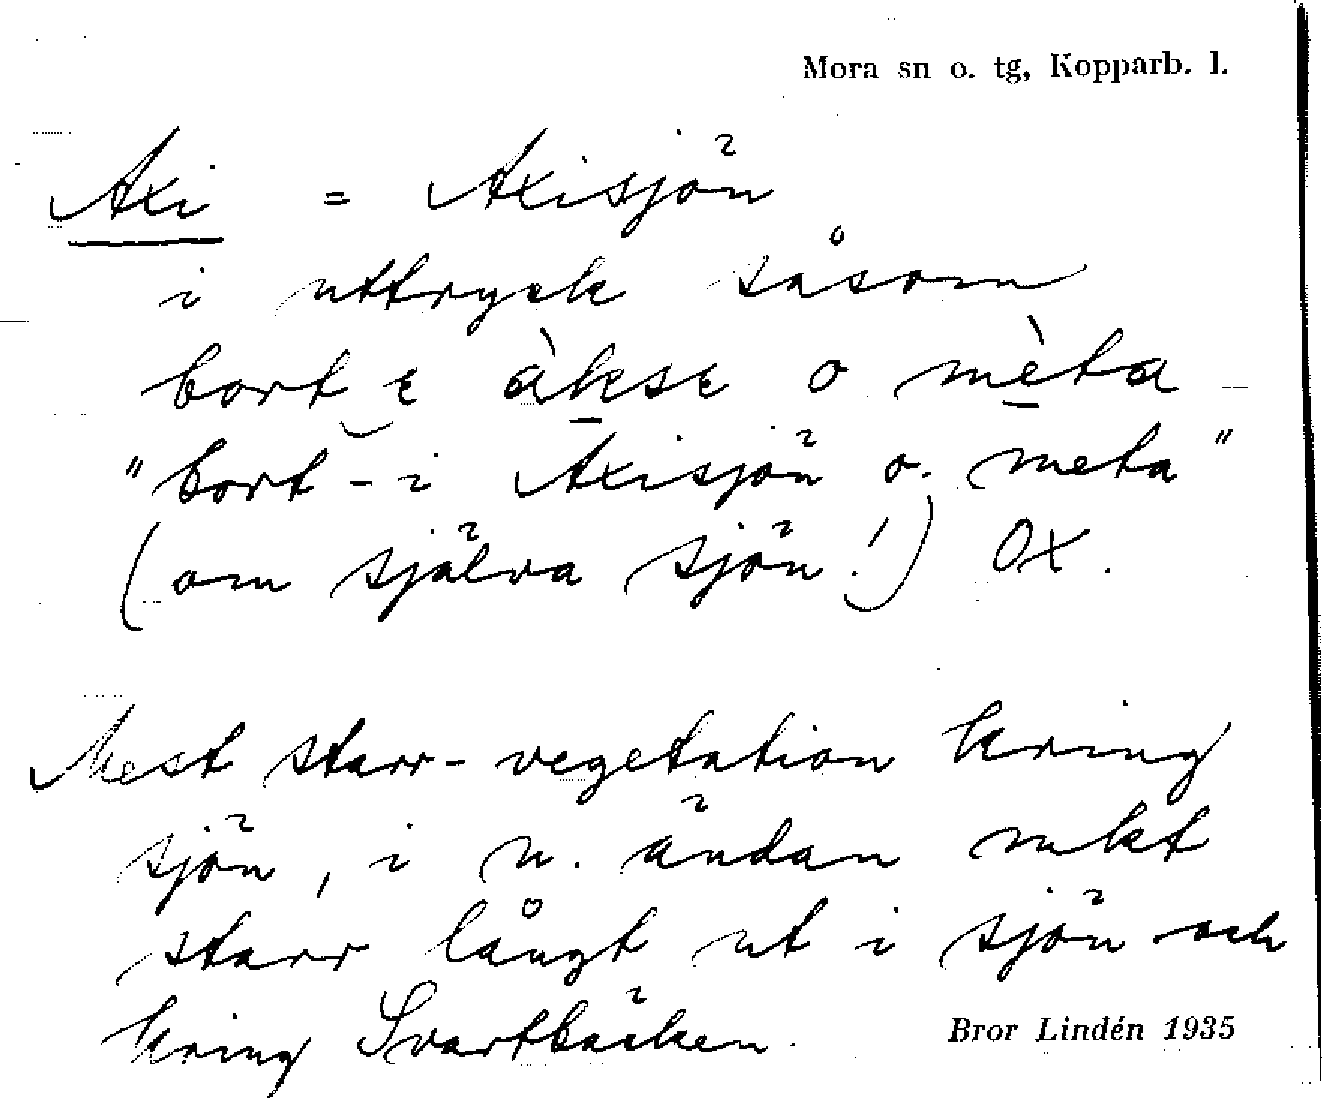 Mora sn o. tg, Kopparb. l.
Axi = Axisjön
i uttryck såsom
bort ɛ àksɛ o mèta
"bort - i Axisjön o. meta"
(om själva sjön!) OX.
Mest starr-vegetation kring
sjön, i n. ändan mkt
starr långt ut i sjön och
kring Svartbäcken.
Bror Lindén 1935